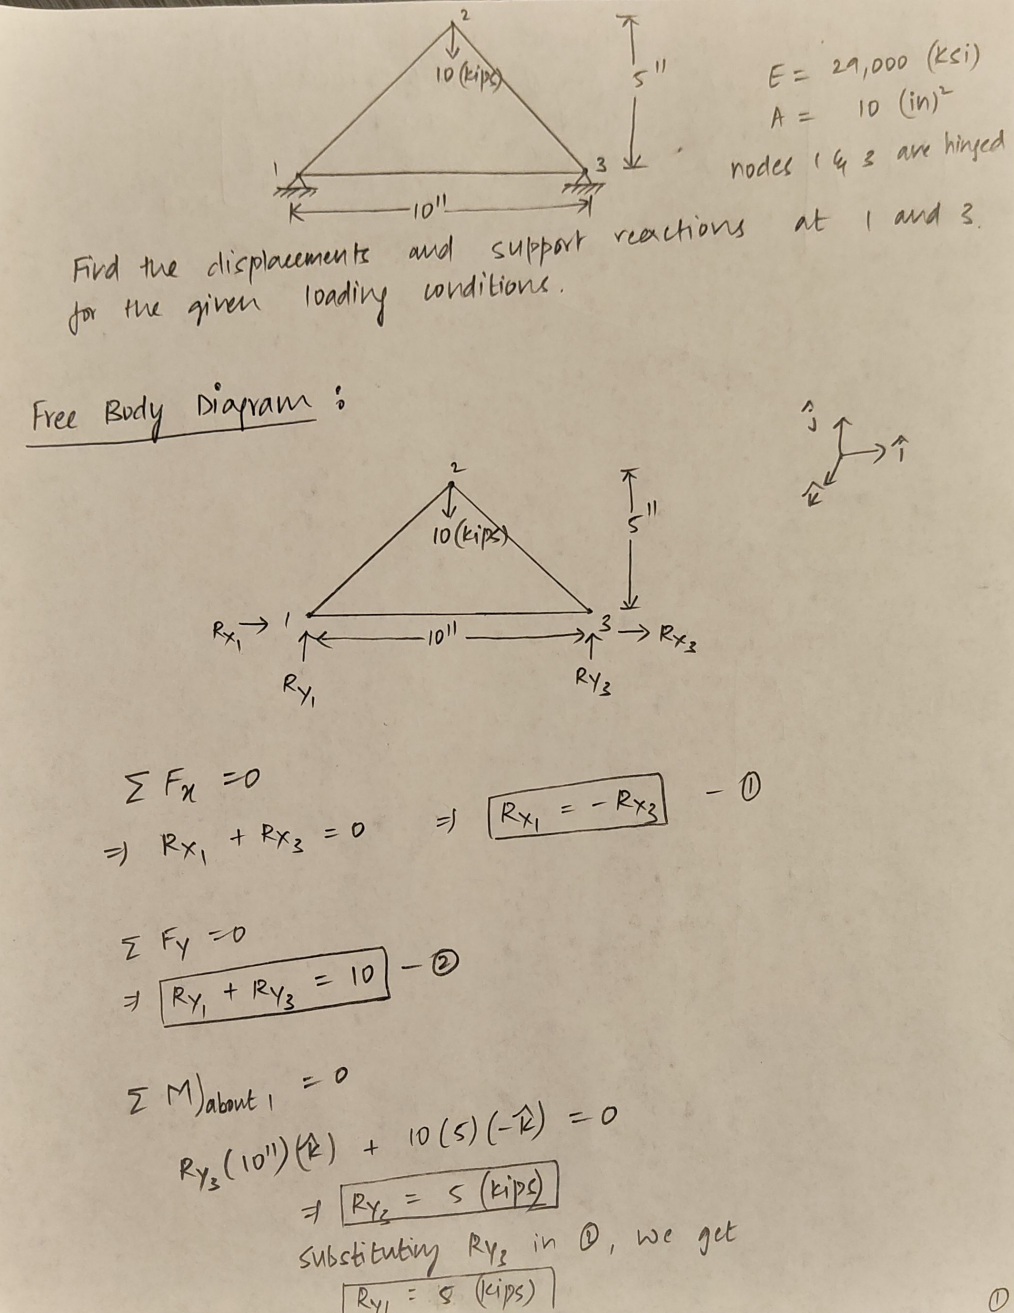 2
10 (kips)
5"
E = 29,000 (ksi)
A = 10 (in)²
nodes 1 & 3 are hinged
1
3
10"
Find the displacements and support reactions at 1 and 3.
for the given loading conditions.
Free Body Diagram :
ĵ
î
k̂
2
10 (kips)
5"
Rx₁ → 1
10"
3 → Rx₃
Ry₁
Ry₃
Σ Fx = 0
⇒ Rx₁ + Rx₃ = 0 ⇒ Rx₁ = - Rx₃ - ①
Σ Fy = 0
⇒ Ry₁ + Ry₃ = 10 - ②
Σ M)about 1 = 0
Ry₃ (10") (k̂) + 10 (5) (-k̂) = 0
⇒ Ry₃ = 5 (kips)
substituting Ry₃ in ②, we get
Ry₁ = 5 (kips)
①